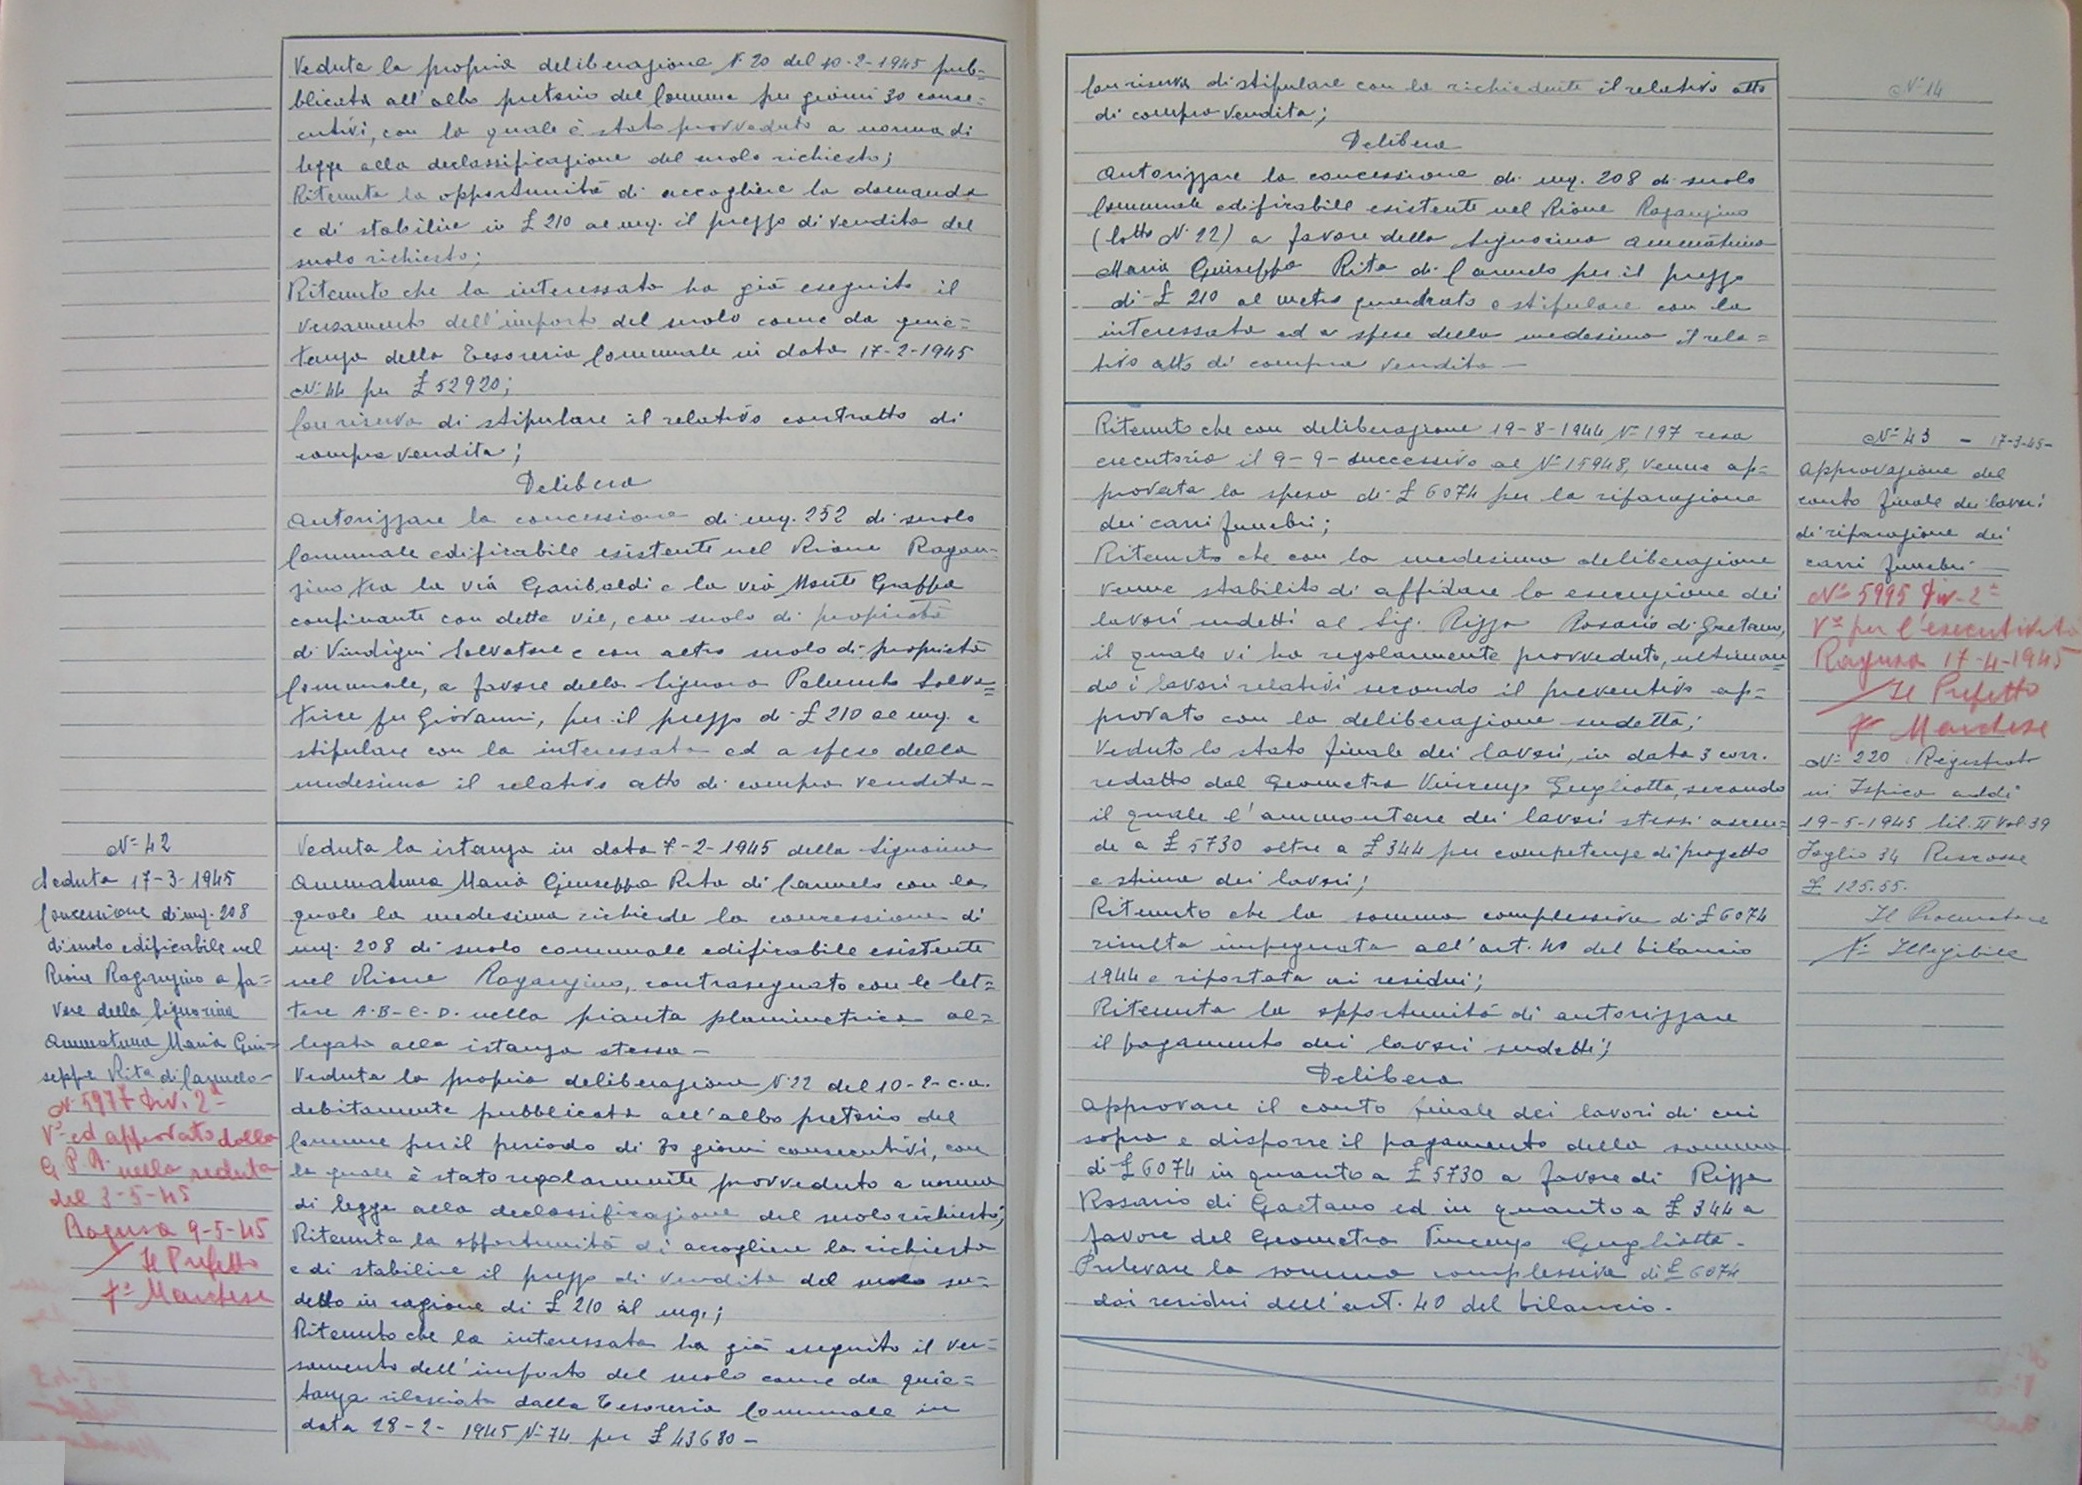 Veduta la propria deliberazione N. 20 del 10-2-1945 pub-
blicata all'albo pretorio del Comune per giorni 30 conse-
cutivi, con la quale è stato provveduto a norma di
legge alla declassificazione del suolo richiesto;
Ritenuta la opportunità di accogliere la domanda
e di stabilire in £ 210 al mq. il prezzo di vendita del
suolo richiesto;
Ritenuto che la interessata ha già eseguito il
versamento dell'importo del suolo come da quie=
tanza della Tesoreria Comunale in data 17-2-1945
N° 44 per £ 52920;
Con riserva di stipulare il relativo contratto di
compra vendita;
Delibera
Autorizzare la concessione di mq. 252 di suolo
Comunale edificabile esistente nel Rione Ragan-
zino tra la via Garibaldi e la via Monte Grappa
confinante con dette vie, con suolo di proprietà
di Vindigni Salvatore e con altro suolo di proprietà
Comunale, a favore della Signora Palumbo Salva=
trice fu Giovanni, per il prezzo di £ 210 al mq. e
stipulare con la interessata ed a spese della
medesima il relativo atto di compra vendita-
N° 42
Seduta 17-3-1945
Concessione di mq. 208
di suolo edificabile nel
Rione Raganzino a fa=
vore della Signorina
Ammatuna Maria Giu-
seppa Rita di Carmelo-
N. 5977 Div. 2ª
V° ed approvato dalla
G.P.A. nella seduta
del 3-5-45
Ragusa 9-5-45
Il Prefetto
f° Marchese
Veduta la istanza in data 7-2-1945 della Signorina
Ammatuna Maria Giuseppa Rita di Carmelo con la
quale la medesima richiede la concessione di
mq. 208 di suolo comunale edificabile esistente
nel Rione Raganzino, contrasegnato con le let=
tere A-B-C-D. nella pianta planimetrica al=
legata alla istanza stessa-
Veduta la propria deliberazione N. 22 del 10-2-c.a.
debitamente pubblicata all'albo pretorio del
Comune per il periodo di 30 giorni consecutivi, con
la quale è stato regolarmente provveduto a norma
di legge alla declassificazione del suolo richiesto;
Ritenuta la opportunità di accogliere la richiesta
e di stabilire il prezzo di vendita del suolo su=
detto in ragione di £ 210 al mq.;
Ritenuto che la interessata ha già eseguito il ver=
samento dell'importo del suolo come da quie=
tanza rilasciata dalla Tesoreria Comunale in
data 28-2-1945 N° 74 per £ 43680-
N° 14
Con riserva di stipulare con la richiedente il relativo atto
di compra vendita;
Delibera
Autorizzare la concessione di mq. 208 di suolo
Comunale edificabile esistente nel Rione Raganzino
(lotto N. 22) a favore della Signorina Ammatuna
Maria Giuseppa Rita di Carmelo per il prezzo
di £ 210 al metro quadrato e stipulare con la
interessata ed a spese della medesima il rela=
tivo atto di compra vendita-
N° 43 - 17-3-45-
Approvazione del
conto finale dei lavori
di riparazione dei
carri funebri-
N° 5995 Div-2ª
V° per l'esecutività
Ragusa 17-4-1945
Il Prefetto
f° Marchese
N° 220 Registrato
in Ispica addì
19-5-1945 lib. II Vol. 39
Foglio 34 Riscosse
£ 125.55.
Il Procuratore
f° Illegibile
Ritenuto che con deliberazione 19-8-1944 N° 197 resa
esecutoria il 9-9-successivo al N° 15948, venne ap=
provata la spesa di £ 6074 per la riparazione
dei carri funebri;
Ritenuto che con la medesima deliberazione
venne stabilito di affidare la esecuzione dei
lavori sudetti al Sig. Rizza Rosario di Gaetano,
il quale vi ha regolarmente provveduto, ultiman=
do i lavori relativi secondo il preventivo ap=
provato con la deliberazione sudetta;
Veduto lo stato finale dei lavori, in data 3 corr.
redatto dal Geometra Vincenzo Gugliotta, secondo
il quale l'ammontare dei lavori stessi ascen=
de a £ 5730 oltre a £ 344 per competenze di progetto
e stima dei lavori;
Ritenuto che la somma complessiva di £ 6074
risulta impegnata all'art. 40 del bilancio
1944 e riportata ai residui;
Ritenuta la opportunità di autorizzare
il pagamento dei lavori sudetti;
Delibera
Approvare il conto finale dei lavori di cui
sopra e disporre il pagamento della somma
di £ 6074 in quanto a £ 5730 a favore di Rizza
Rosario di Gaetano ed in quanto a £ 344 a
favore del Geometra Vincenzo Gugliotta-
Prelevare la somma complessiva di £ 6074
dai residui dell'art. 40 del bilancio.